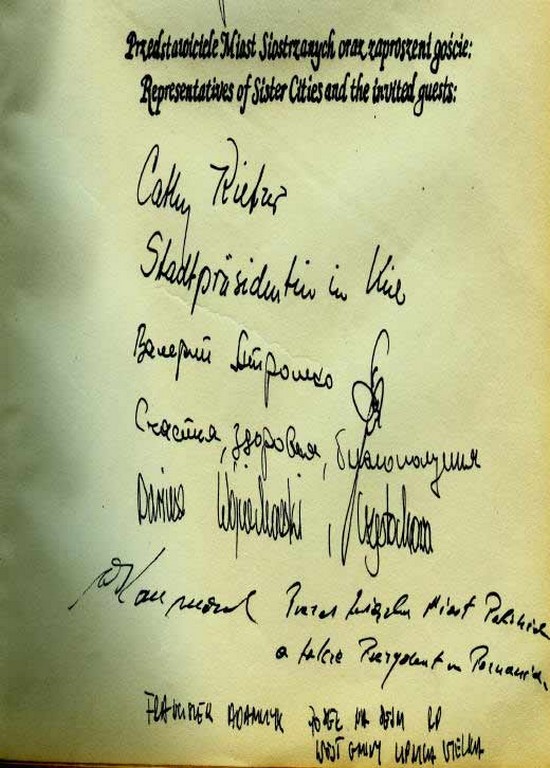 Przedstawiciele Miast Siostrzanych oraz zaproszeni goście:
Representatives of Sister Cities and the invited guests:
Cathy Kietzer
Stadtpräsidentin in Kiel
Валерий
Счастья, здоровья, благополучия
Dariusz Wojciechowski, Częstochowa
Prezes Związku Miast Polskich
a także Prezydent m. Poznania.
FRANCISZEK ADAMCZYK POSEŁ NA SEJM RP
WÓJT GMINY